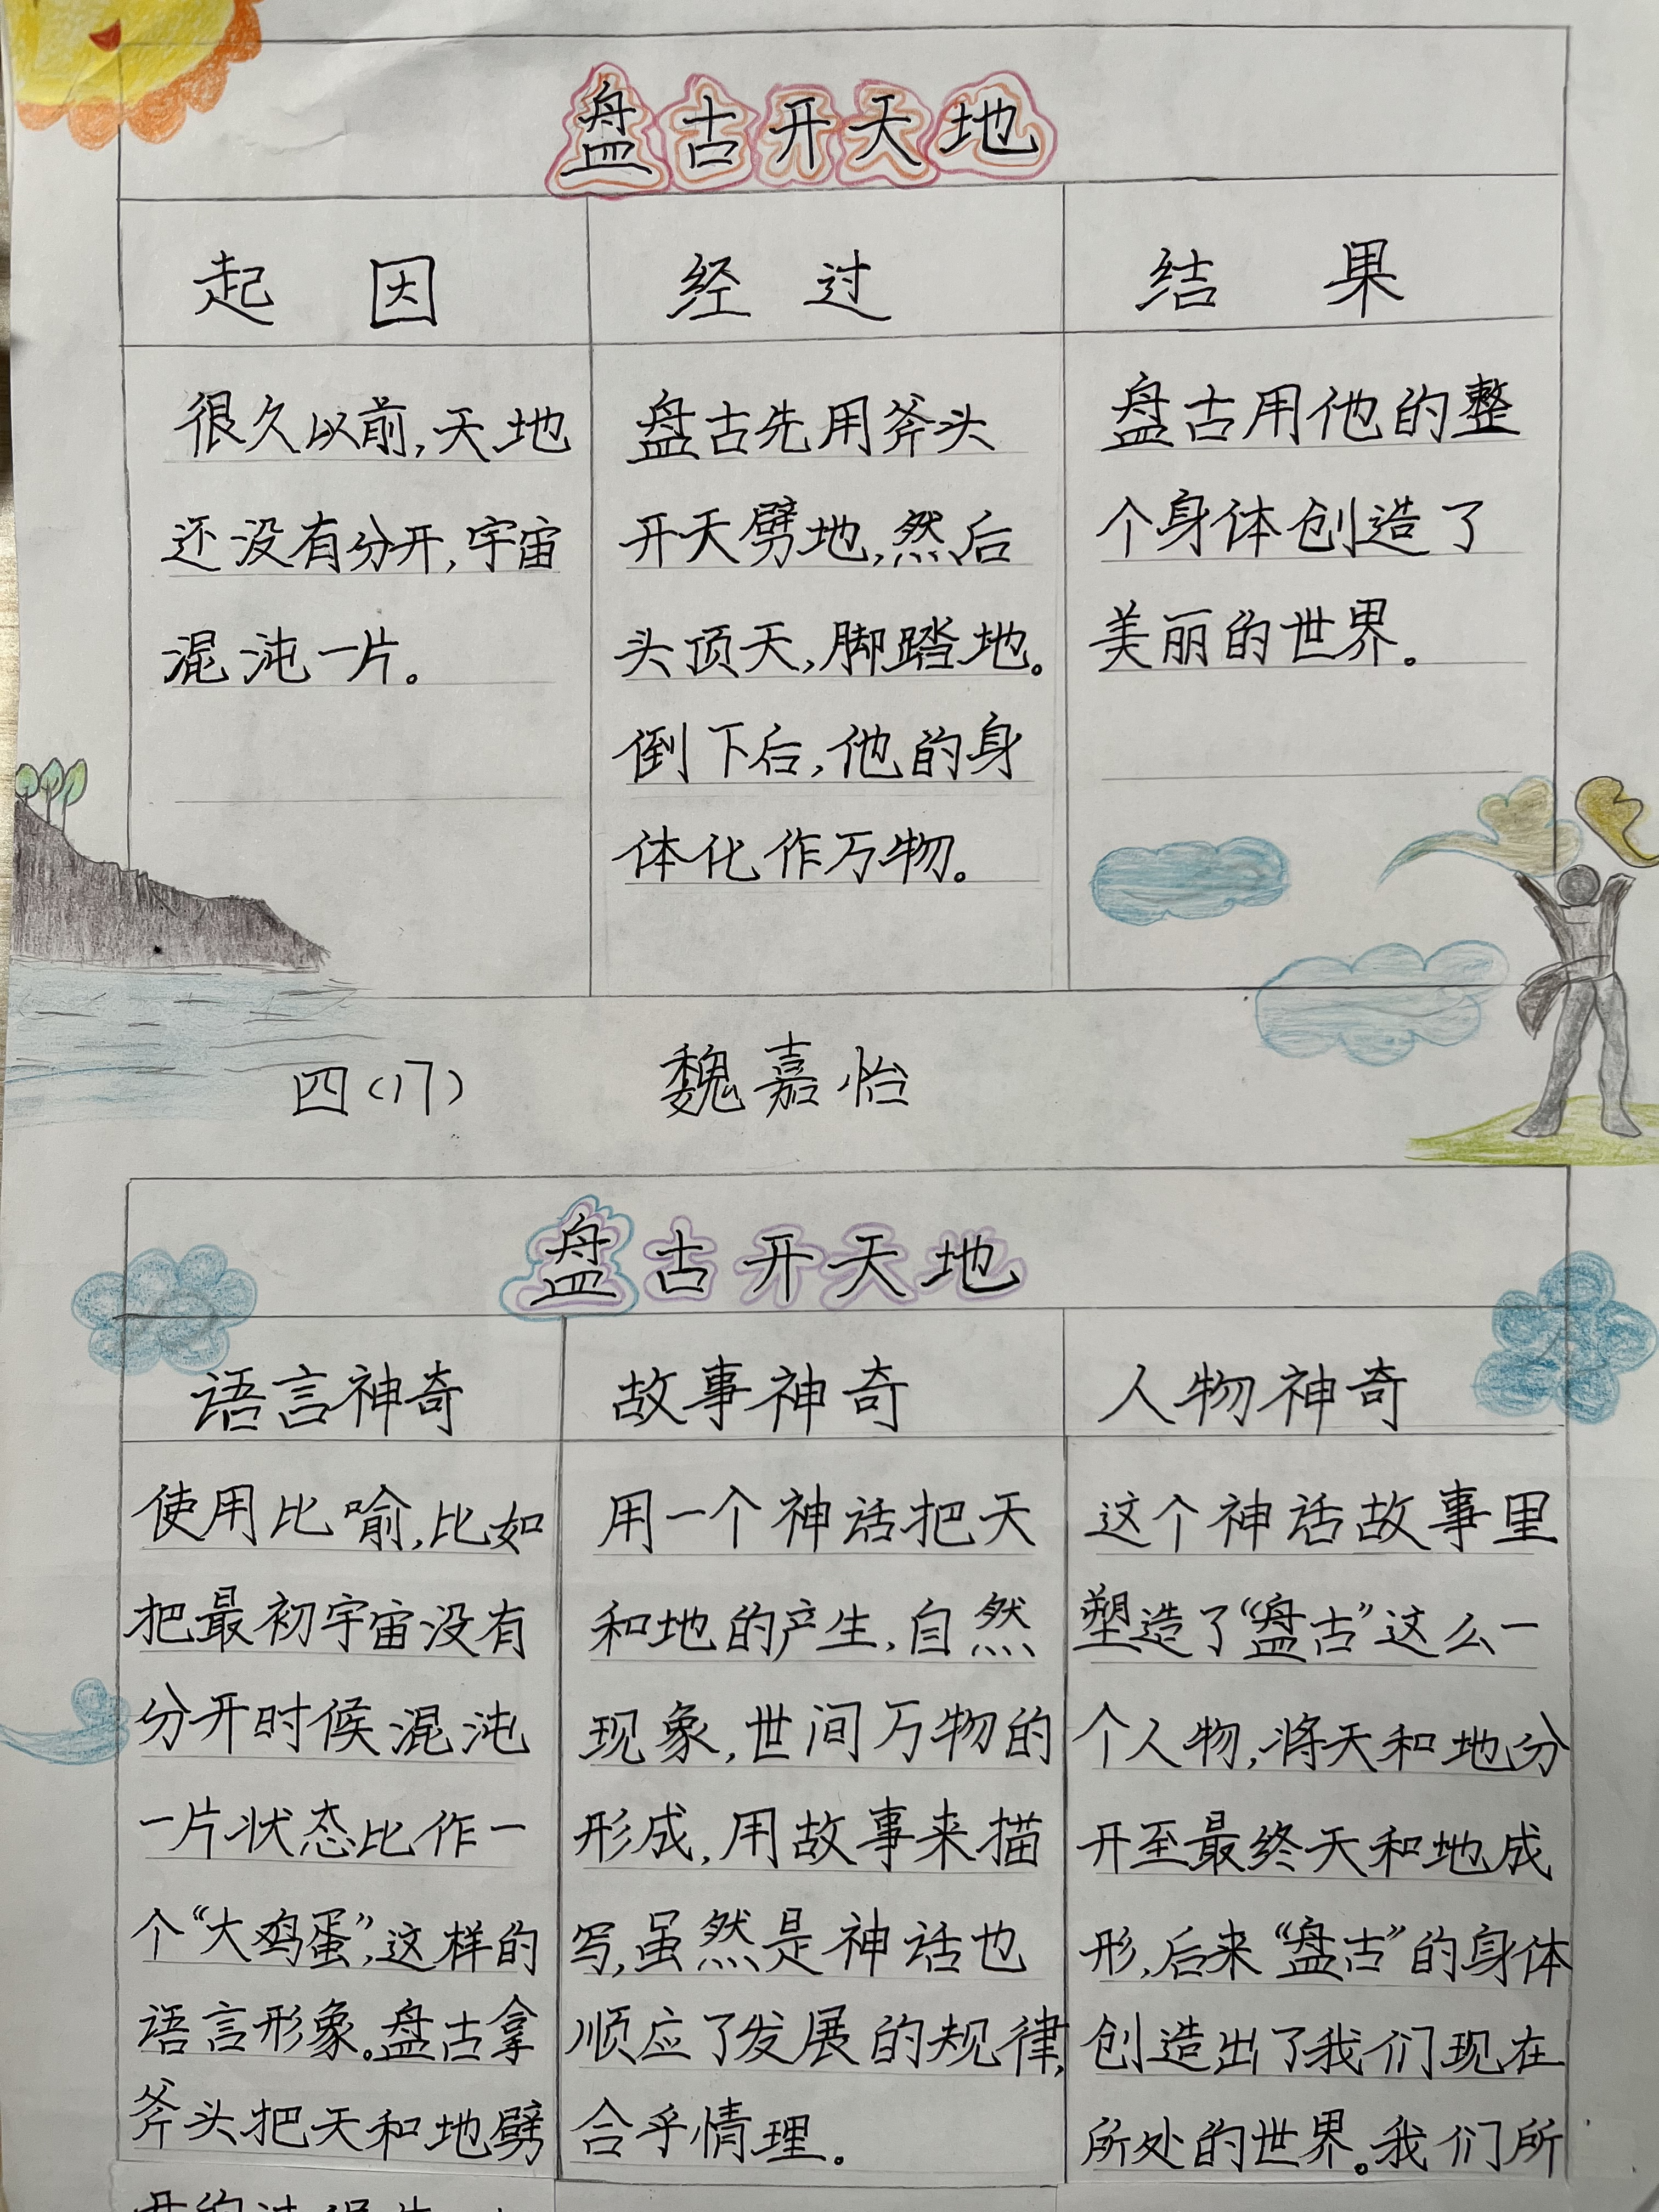 盘古开天地
起因
经过
结果
很久以前,天地
还没有分开,宇宙
混沌一片。
盘古先用斧头
开天劈地,然后
头顶天,脚踏地。
倒下后,他的身
体化作万物。
盘古用他的整
个身体创造了
美丽的世界。
四(17)
魏嘉怡
盘古开天地
语言神奇
故事神奇
人物神奇
使用比喻,比如
把最初宇宙没有
分开时候混沌
一片状态比作一
个“大鸡蛋”,这样的
语言形象。盘古拿
斧头把天和地劈
用一个神话把天
和地的产生,自然
现象,世间万物的
形成,用故事来描
写,虽然是神话也
顺应了发展的规律,
合乎情理。
这个神话故事里
塑造了“盘古”这么一
个人物,将天和地分
开至最终天和地成
形,后来“盘古”的身体
创造出了我们现在
所处的世界。我们所